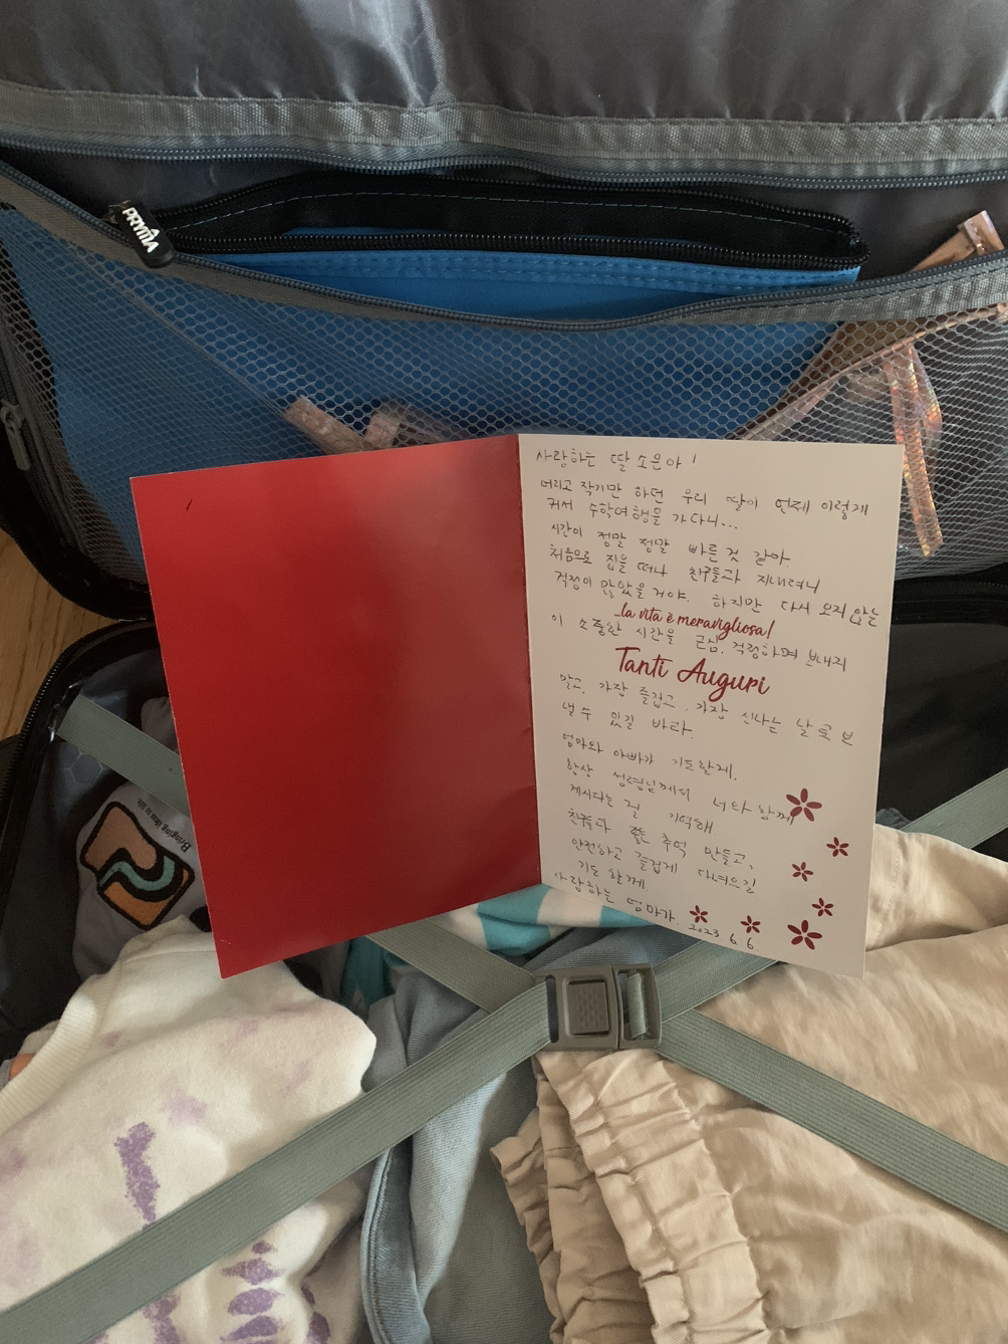 PRYMA
사랑하는 딸 소은아!
어리고 작기만 하던 우리 딸이 언제 이렇게
커서 수학여행을 가다니...
시간이 정말 정말 빠른 것 같아.
처음으로 집을 떠나 친구들과 지내려니
걱정이 많았을 거야. 하지만 다시 오지 않는
la vita è meravigliosa!
이 소중한 시간을 근심, 걱정하며 보내지
Tanti Auguri
말고, 가장 즐겁고, 가장 신나는 날로 보
낼 수 있길 바라.
엄마와 아빠가 기도할게.
항상 성령님께서 너와 함께
계시다는 걸 기억해
친구들과 좋은 추억 만들고,
안전하고 즐겁게 다녀오길
기도할게
사랑하는 엄마가.
2023 6. 6.
Bringing ideas to life.